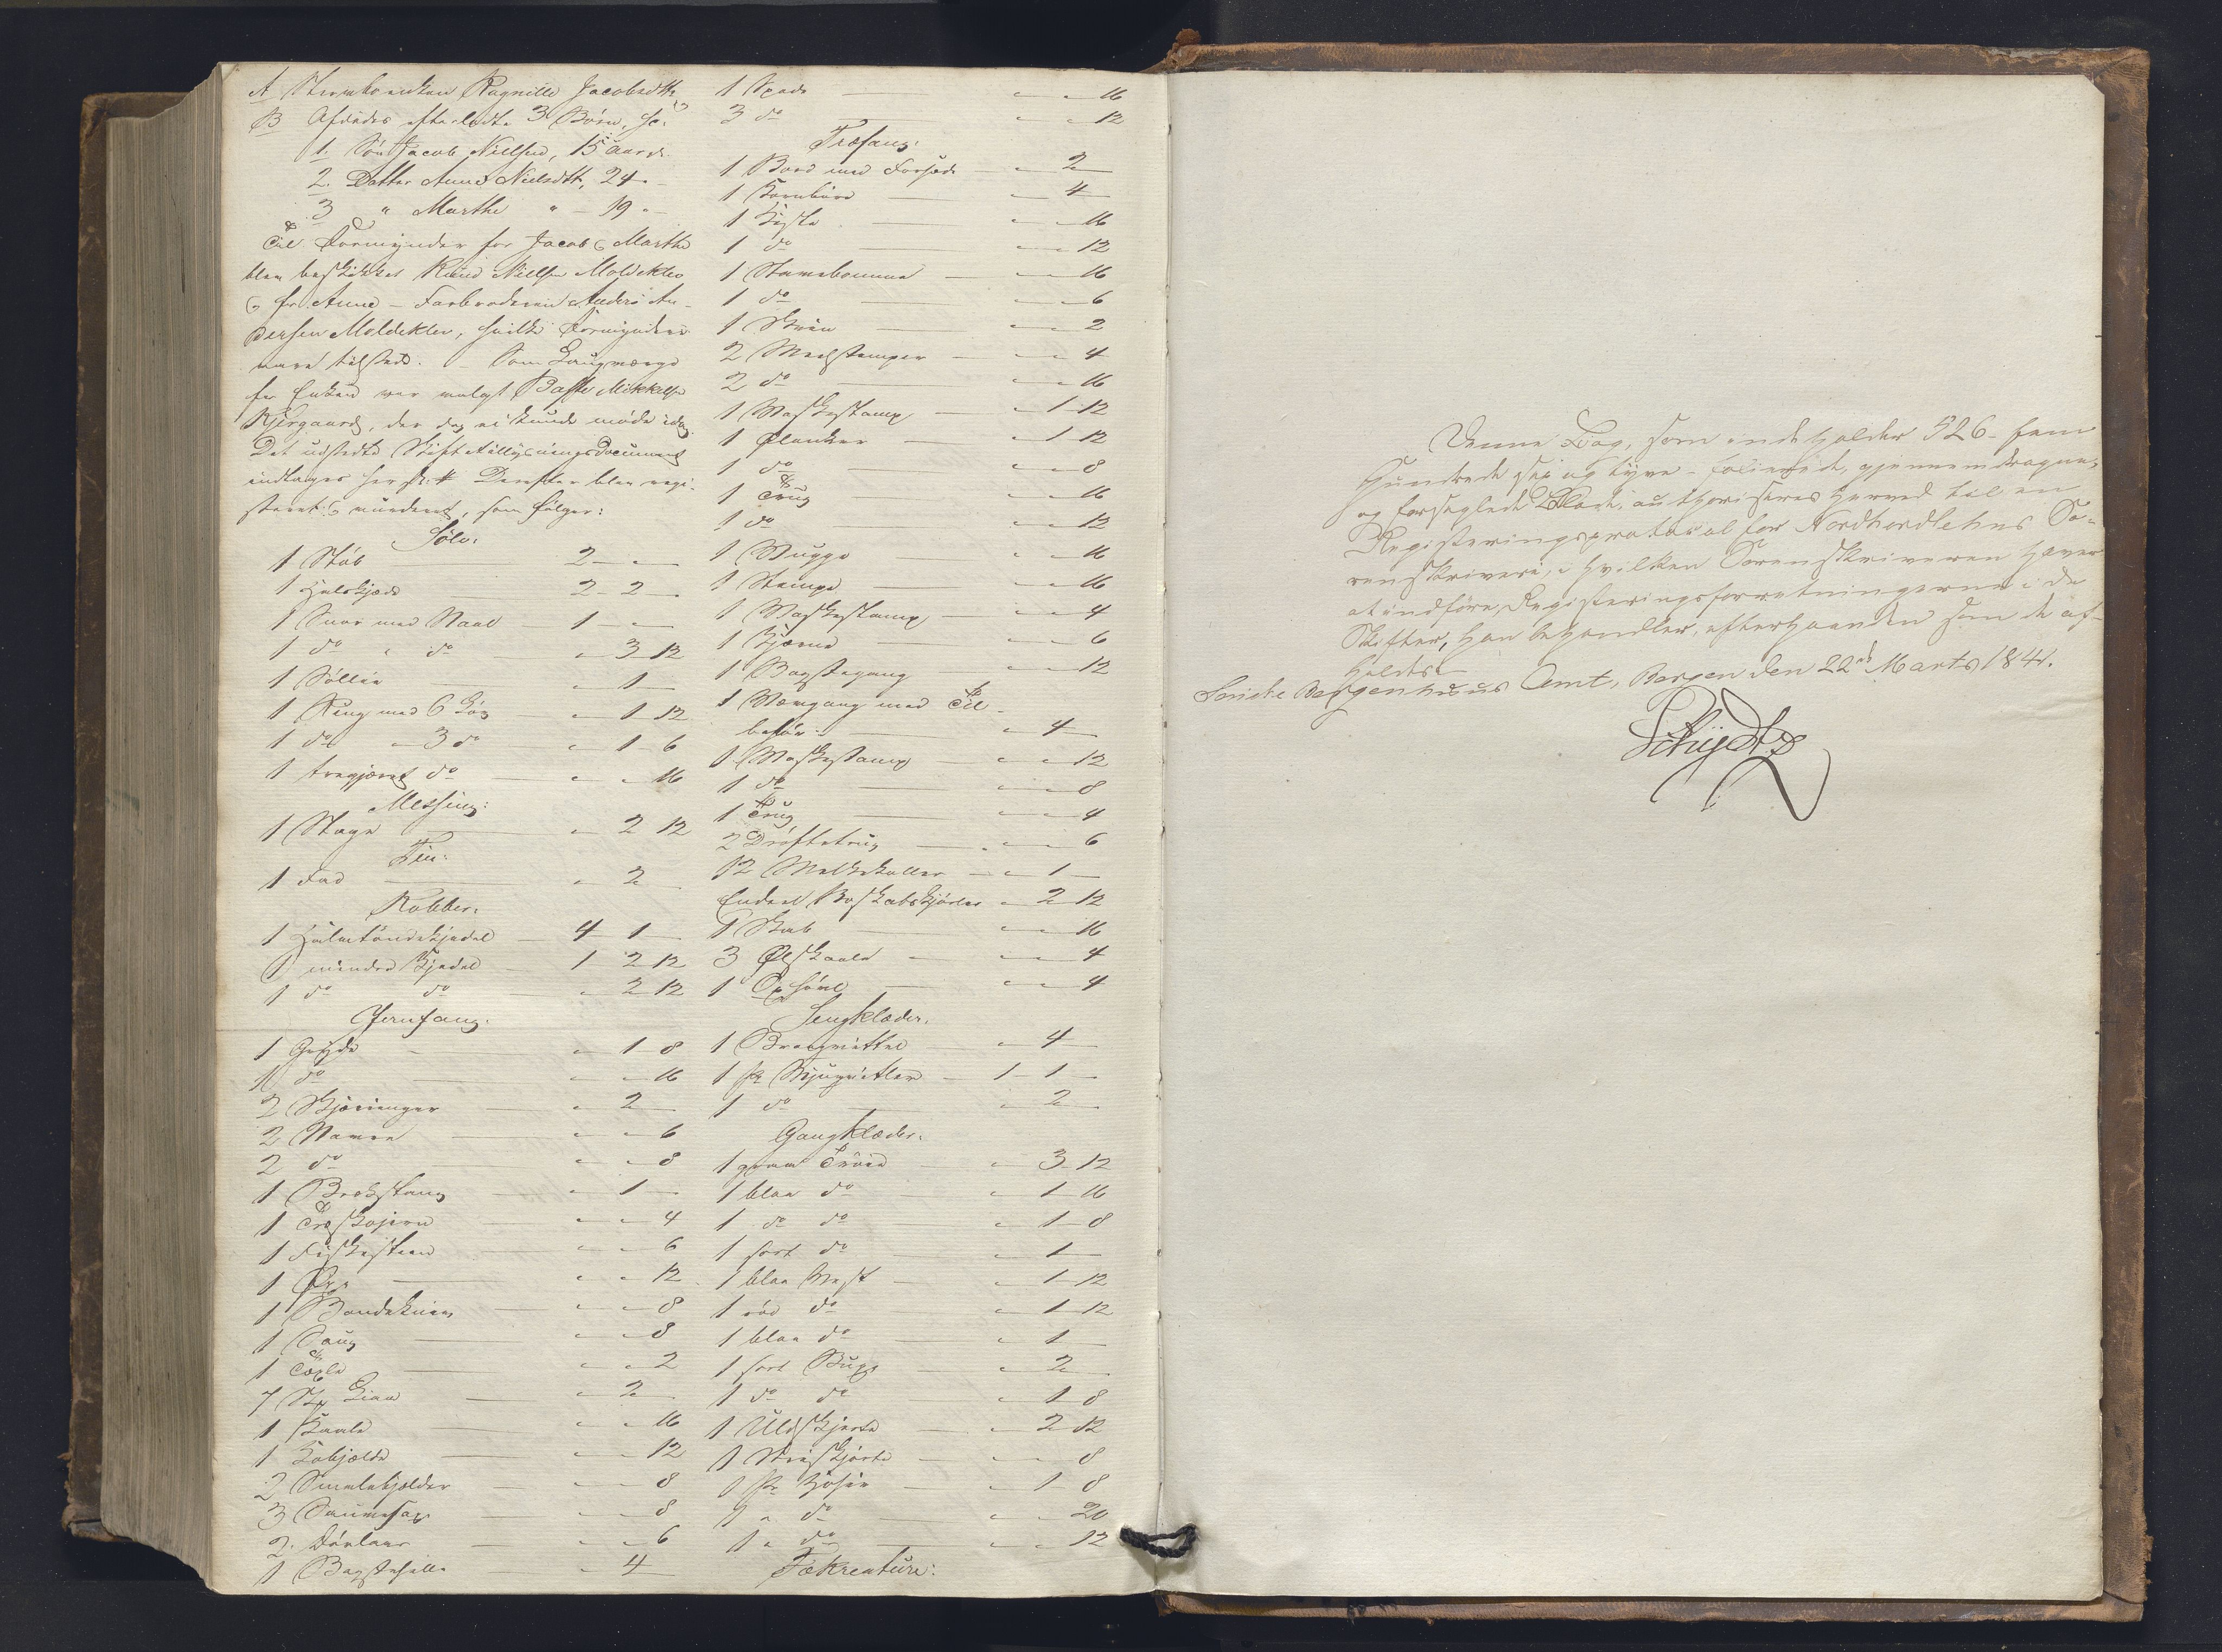 A Sterboenken Ragnille Jacobsdtr
B Afdødes efterladte 3 Børn, sc:
1. Søn Jacob Nielsen, 15 aar
2. Datter Anne Nielsdtr, 24 -
3 " Marthe " - 19 -
Til Formynder for Jacob & Marthe
blev beskikket Knud Nielsen Moldeklev
& for Anne - Farbroderen Anders An-
dersen Moldeklev, hvilke Formyndere
vare tilstede. - Som Laugværge
for Enken var valgt Baste Mikkelsen
Kjergaard, der dog ei kunde møde idag.
Det udstedte Skiftetillysningsdocument
indtages her sk: # Derefter blev regi-
streret & vurderet, som følger:
Sølv:
1 Støb 2 - "
1 Halskjæde 2 - 2 -
1 Snor med Naal 1 - "
1 do " do " 3 12
1 Søllie " 1
1 Ring med 6 Løv " 1 12
1 do " 3 do " 1 6
1 do " " 16
Messing:
1 Stage " 2 12
Tin:
1 Fad " 2
Kobber:
1 Halvtøndekjedel 4 1
1 mindre Kjedel 1 2 12
1 do do " 2 12
Jernfang:
1 Gryde " 1 8
1 do " " 16
2 Skjæringer " 2
2 Navre " " 6
2 do " " 8
1 Brækstang " 1
1 Træskojern " " 4
1 Fiskesteen " " 6
1 Øxe " " 12
1 Baandekniv " " 8
1 Saug " " 8
1 Texle " " 2
7 Stk Liaa " 2
1 " " 16
1 Kobjælde " " 12
2 Smalebjælder " " 8
3 Sauesax " " 8
2 Dørlaas " " 6
1 Bagstehelle " 4
1 Spade " " 16
3 do " " 12
Træfang:
1 Bord med Forsæde " 2
1 Kornbøre " 4
1 Kiste " " 16
1 do " " 12
1 Stavebomme " " 16
1 do " " 6
1 Skrin " " 2
2 Meelstamper " " 4
2 do " " 16
1 Vaskestamp " 1 12
1 Ølanker " 1 12
1 do " " 8
1 Trug " " 16
1 do " " 12
1 Vugge " " 16
1 Stampe " " 16
1 Vaskestamp " " 4
1 Kjærne " " 6
1 Bagstegang " " 12
1 Vævgang med Til-
behør " 4
1 Vaskestamp " " 12
1 do " " 8
1 Trug " " 4
2 Drøftetrug " " 6
12 Melkekoller " 1
Endeel Boskabskjørler " 2 12
1 Skab " " 16
3 Ølskaale " " 4
1 " " 4
Sengklæder.
1 " 4
1 pr 1 1
1 do " 2
Gangklæder.
1 grøn Trøie " 3 12
1 blaa do " 1 16
1 do do " 1 8
1 sort do " 1
1 blaa Vest " 1 12
1 rød do " 1 12
1 blaa do " 1
1 sort Buxe " 2
1 do do " 1 8
1 Uldskjorte " 2 12
1 Striskjorte " " 8
1 pr Hoser " 1 8
1 " do " " 20
1 " do " " 12
Fækreature:
Denne Bog, som indeholder 526 - fem
Hundrede sex og tyve - folierede, gjennemdragne,
og forseglede Blade, authoriseres herved til en
Registreringsprotocol for Nordhordlehns So-
renskriveri, i hvilken Sorenskriveren haver
at indføre Registreringsforretningerne i de
Skifter, han behandler, efterhaanden som de af-
holdes. -
Søndre Bergenhuus Amt, Bergen den 22de Marts 1841.
Schydtz